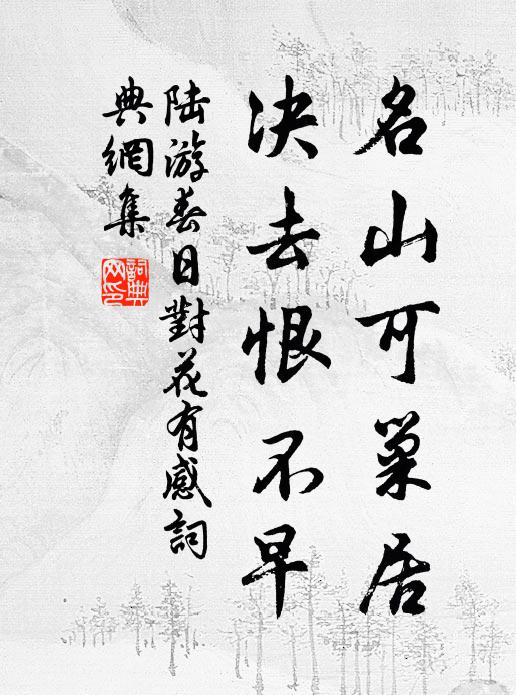 名山可巢居
决去恨不早
陆游春日對花有感詞
典網集
詞典
网印